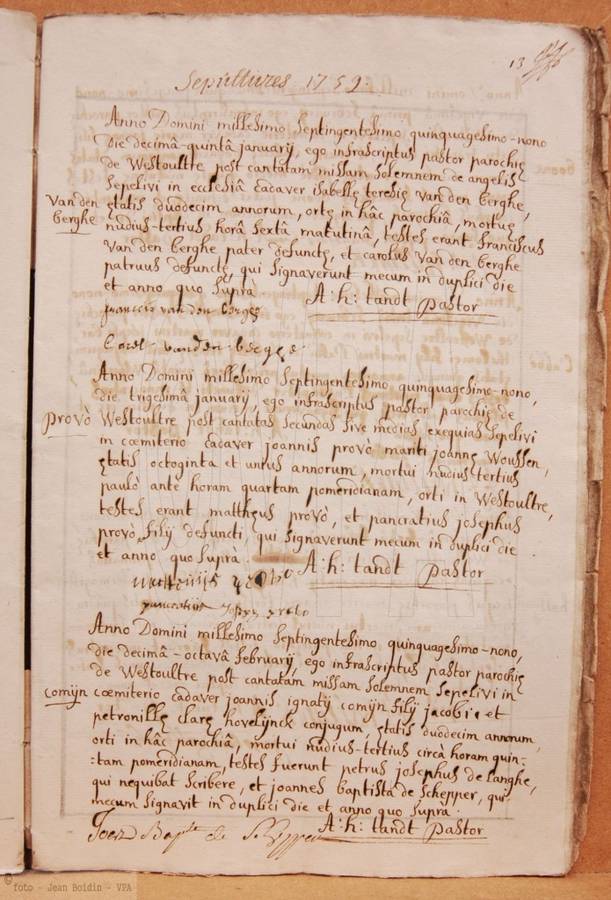 13
Sepultures 1759.
Anno Domini millesimo septingentesimo quinquagesimo-nono
die decimâ-quintâ january, ego infrascriptus pastor parochię
de Westoultre post cantatam missam solemnem de angelis
sepelivi in ecclesiâ cadaver isabellę teresię van den berghe,
van den berghe
ętatis duodecim annorum, ortę in hâc parochiâ, mortuę
nudius-tertius horâ sextâ matutinâ, testes erant franciscus
van den berghe pater defunctę, et carolus van den berghe
patruus defunctę, qui signaverunt mecum in duplici die
et anno quo suprà
A: h: tandt pastor
francois van den berghe
Carel vanden berghe
Anno Domini millesimo septingentesimo quinquagesimo-nono,
die trigesimâ january, ego infrascriptus pastor parochię de
provò
Westoultre post cantatas secundas sive medias exequias sepelivi
in cœmiterio cadaver joannis provò mariti joannę Woussen,
ętatis octoginta et unius annorum, mortui nudius-tertius
paulò ante horam quartam pomeridianam, orti in Westoultre,
testes erant matthęus provò, et pancratius josephus
provò filij defuncti, qui signaverunt mecum in duplici die
et anno quo suprà.
A: h: tandt pastor
Anno Domini millesimo septingentesimo quinquagesimo-nono,
die decimâ-octavâ february, ego infrascriptus pastor parochię
de Westoultre post cantatam missam solemnem sepelivi in
comijn
cœmiterio cadaver joannis ignatij comijn filij jacobi et
petronillę clarę hovelijnck conjugum, ętatis duodecim annorum,
orti in hâc parochiâ, mortui nudius-tertius circà horam quin-
:tam pomeridianam, testes fuerunt petrus josephus de langhe,
qui nequibat scribere, et joannes baptista de schepper, qui
mecum signavit in duplici die et anno quo suprà.
A: h: tandt pastor
Joes Bapte de Schepper
©foto - Jean Boidin - VPA